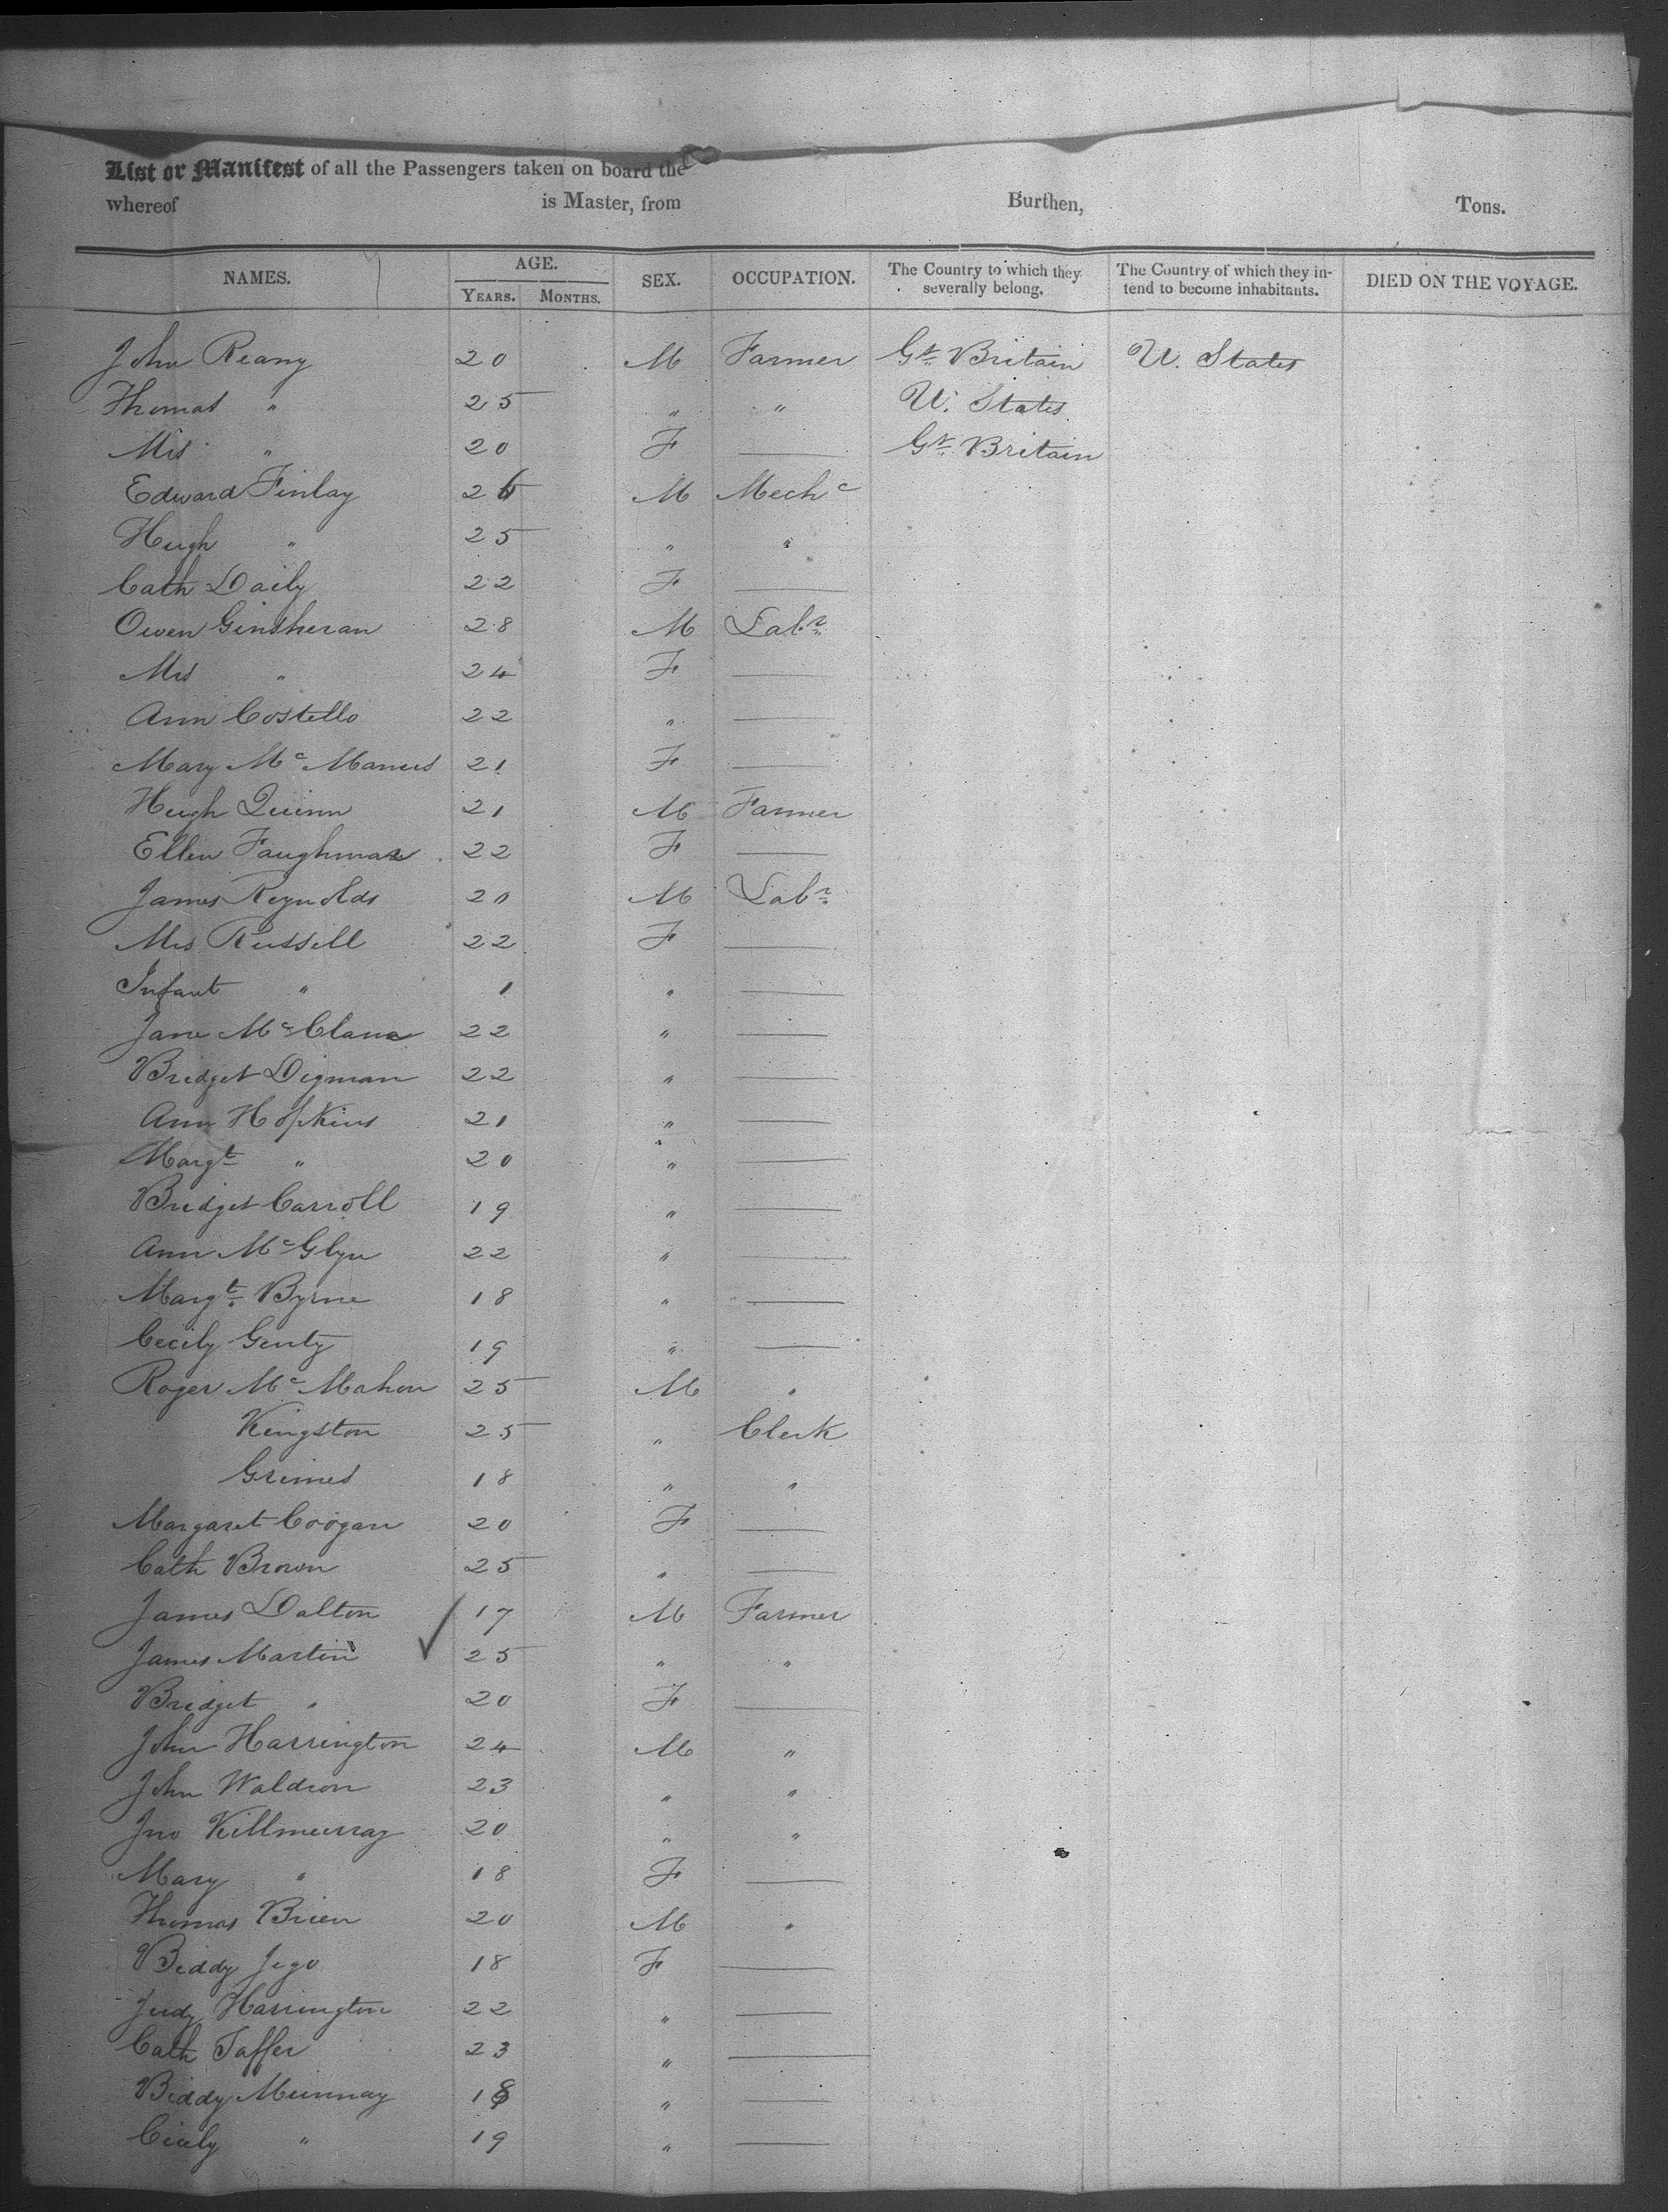 List or Manifest of all the Passengers taken on board the
whereof is Master, from Burthen, Tons.
NAMES. AGE. YEARS. MONTHS. SEX. OCCUPATION. The Country to which they severally belong. The Country of which they intend to become inhabitants. DIED ON THE VOYAGE.
John Reany 20 M Farmer Gt. Britain U. States
Thomas " 25 " " U. States
Mrs " 20 F — Gt. Britain
Edward Finlay 26 M Mechc
Hugh " 25 " "
Cath Daily 22 F —
Owen Ginsheran 28 M Labr
Mrs " 24 F —
Ann Costello 22 " —
Mary McManus 21 F —
Hugh Quinn 21 M Farmer
Ellen Faughman 22 F —
James Reynolds 20 M Labr
Mrs Russell 22 F —
Infant " 1 " —
Jane McClane 22 " —
Bridget Digman 22 " —
Ann Hopkins 21 " —
Margt " 20 " —
Bridget Carroll 19 " —
Ann McGlyn 22 " —
Margt Byrne 18 " —
Cecily Genty 19 " —
Roger McMahon 25 M "
Kingston 25 " Clerk
Grimes 18 " "
Margaret Coogan 20 F —
Cath Brown 25 " —
James Dalton 17 M Farmer
James Martin 25 " "
Bridget " 20 F —
John Harrington 24 M "
John Waldron 23 " "
Jno Killmurray 20 " "
Mary " 18 F —
Thomas Brien 20 M "
Biddy Jego 18 F —
Judy Harrington 22 " —
Cath Taffer 23 " —
Biddy Munnay 18 " —
Cicely " 19 " —